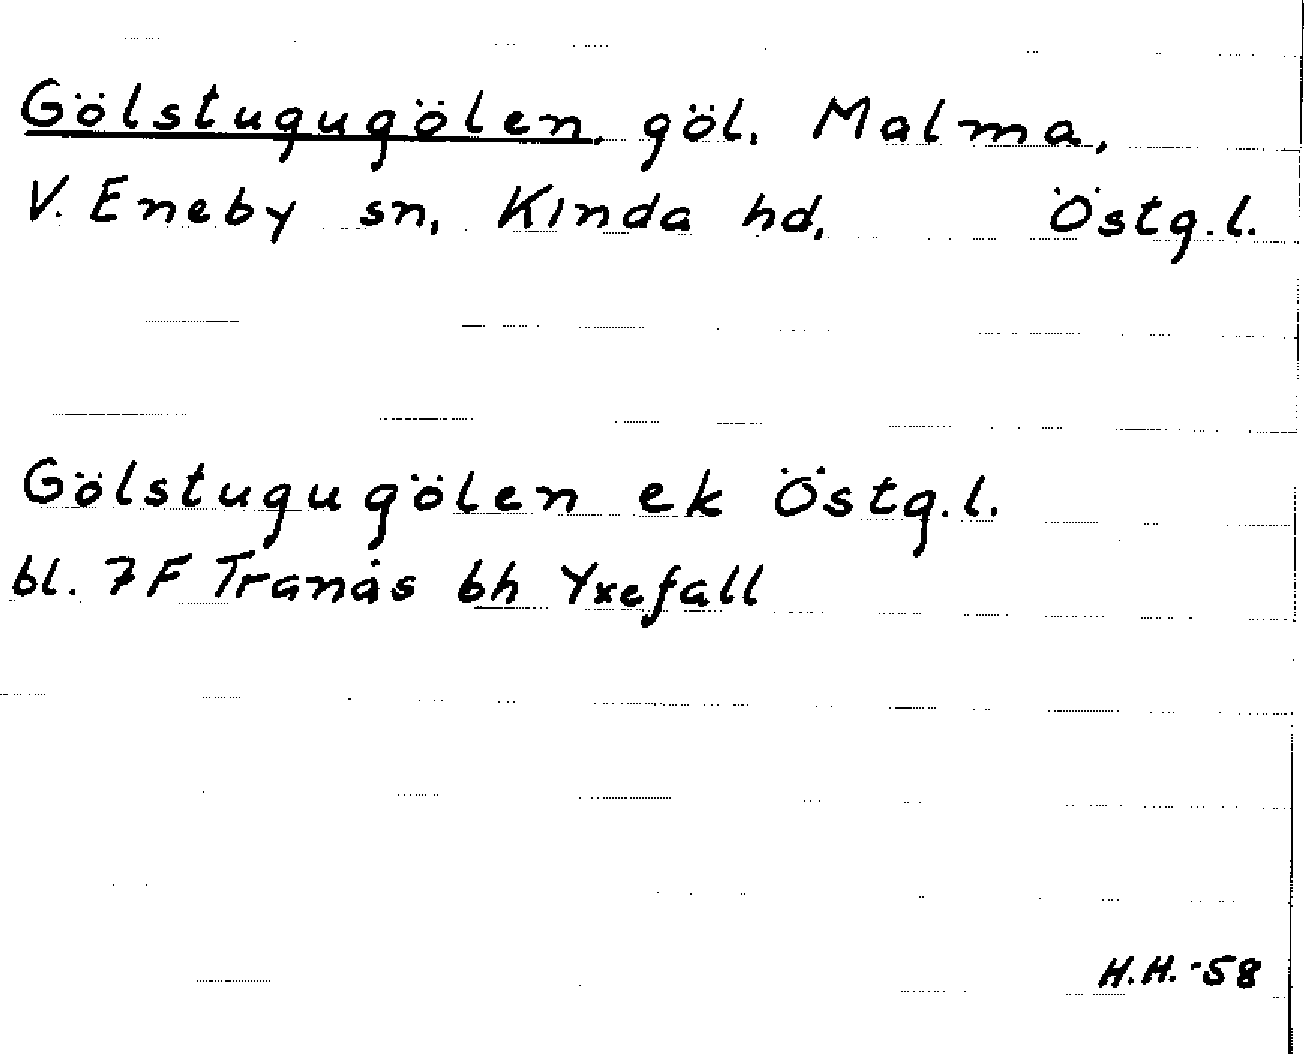 Gölstugugölen, göl. Malma,
V. Eneby sn, Kinda hd, Östg.l.
Gölstugugölen ek Östg.l.
bl. 7F Tranås bh Yxefall
H.H. -58